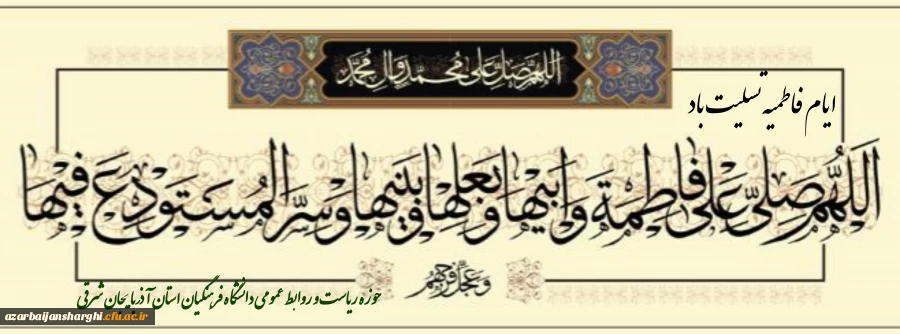 اللهم صل علی محمد وآل محمد
ایام فاطمیه تسلیت باد
اَللّهُمَّ صَلِّ عَلی فاطِمَةَ وَاَبیها وَبَعلِها وَبَنیها وَسِرِّ المُستَودَعِ فیها
وعجل فرجهم
حوزه ریاست و روابط عمومی دانشگاه فرهنگیان استان آذربایجان شرقی
azarbaijansharghi.cfu.ac.ir